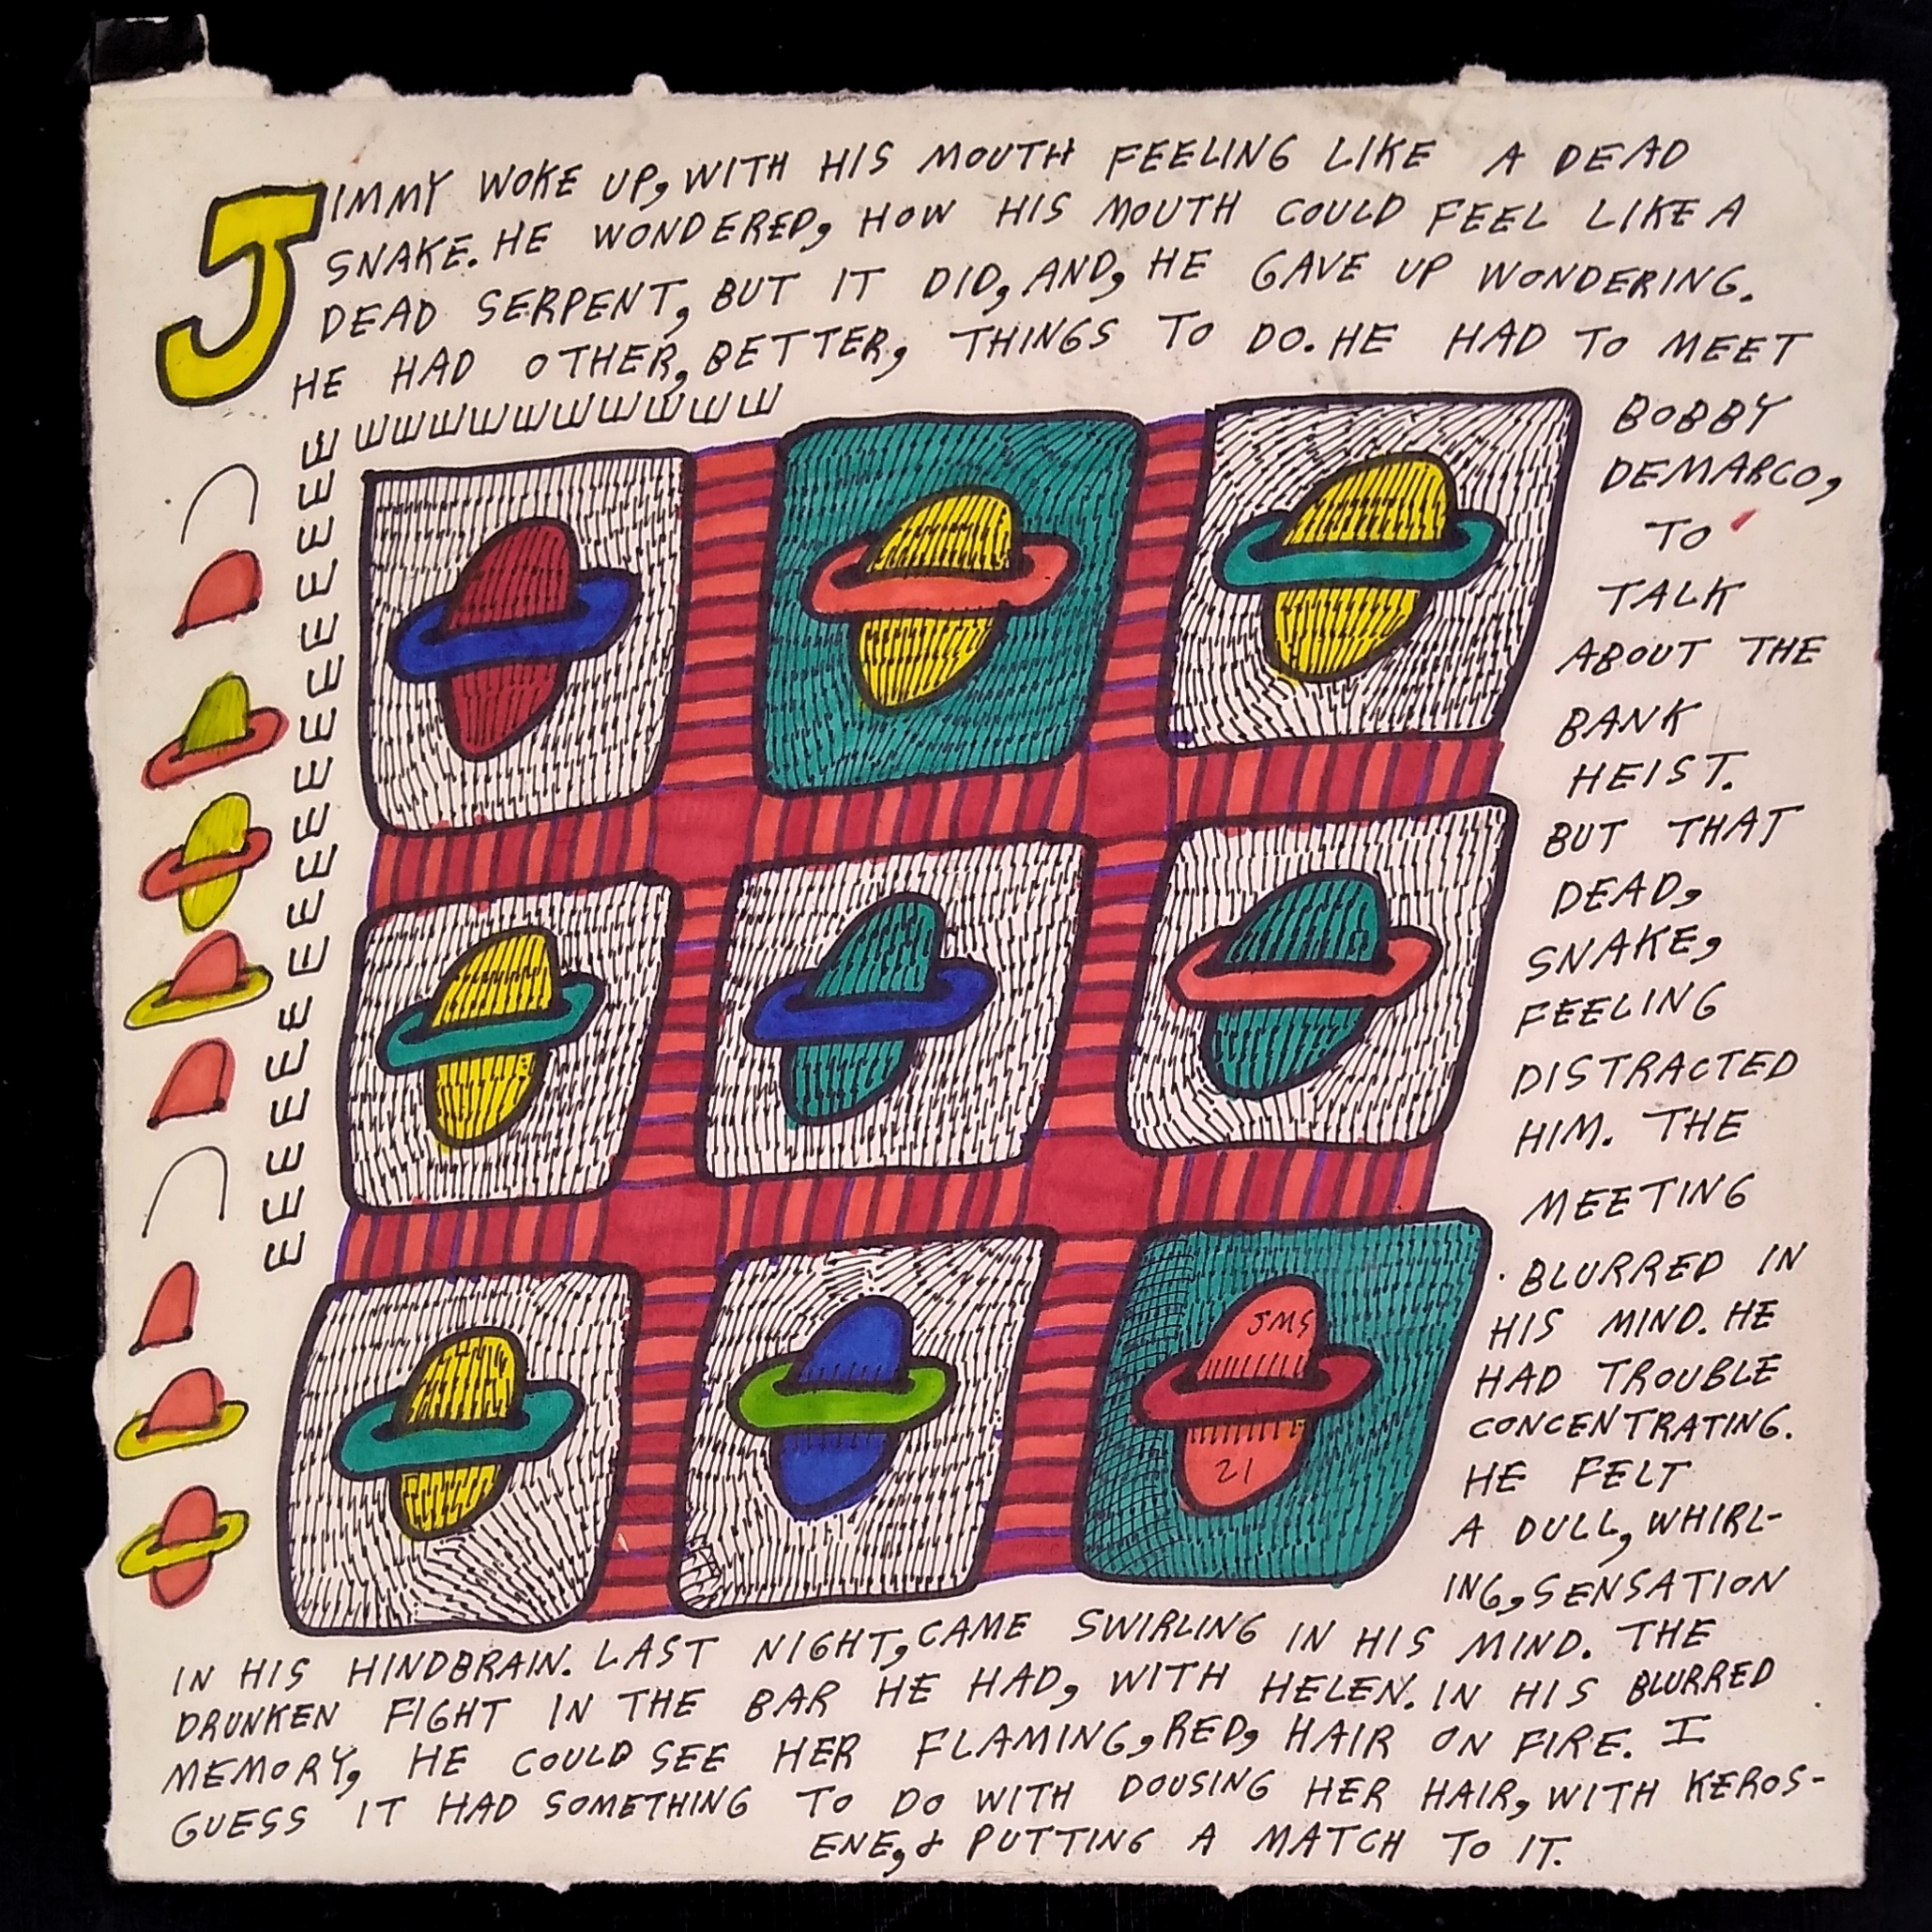 JIMMY WOKE UP, WITH HIS MOUTH FEELING LIKE A DEAD
SNAKE. HE WONDERED, HOW HIS MOUTH COULD FEEL LIKE A
DEAD SERPENT, BUT IT DID, AND, HE GAVE UP WONDERING.
HE HAD OTHER, BETTER, THINGS TO DO. HE HAD TO MEET
BOBBY
DEMARCO,
TO
TALK
ABOUT THE
BANK
HEIST.
BUT THAT
DEAD,
SNAKE,
FEELING
DISTRACTED
HIM. THE
MEETING
BLURRED IN
HIS MIND. HE
HAD TROUBLE
CONCENTRATING.
HE FELT
A DULL, WHIRL-
ING, SENSATION
IN HIS HINDBRAIN. LAST NIGHT, CAME SWIRLING IN HIS MIND. THE
DRUNKEN FIGHT IN THE BAR HE HAD, WITH HELEN. IN HIS BLURRED
MEMORY, HE COULD SEE HER FLAMING, RED, HAIR ON FIRE. I
GUESS IT HAD SOMETHING TO DO WITH DOUSING HER HAIR, WITH KEROS-
ENE, & PUTTING A MATCH TO IT.
JMS
21